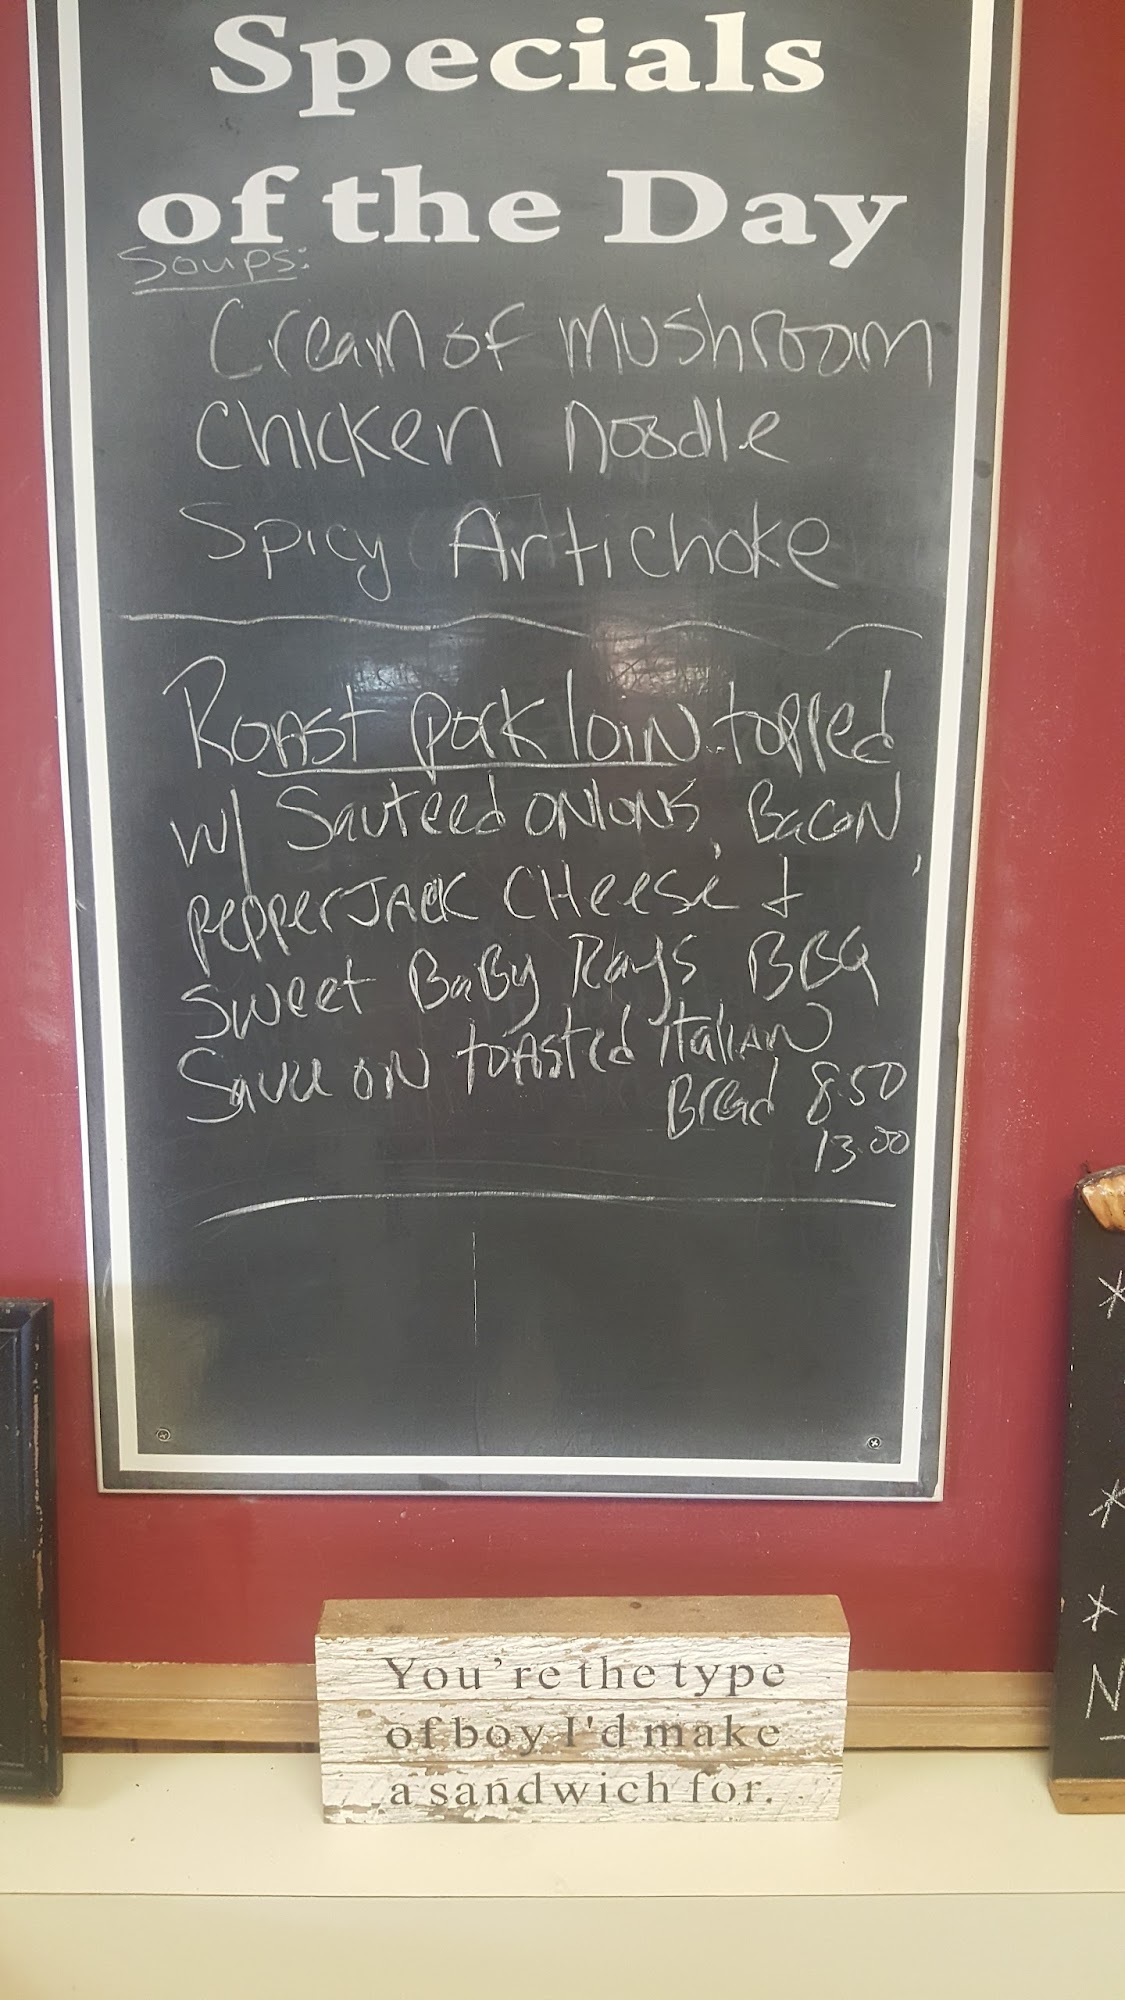 Specials
of the Day
Soups:
Cream of mushroom
Chicken noodle
Spicy Artichoke
Roast pork loin topped
w/ Sauteed onions, Bacon,
pepperJACK CHeese +
Sweet BaBy Rays BBQ
Sauce on toasted italian
Bread 8.50
13.00
You're the type
of boy I'd make
a sandwich for.
*
*
*
N